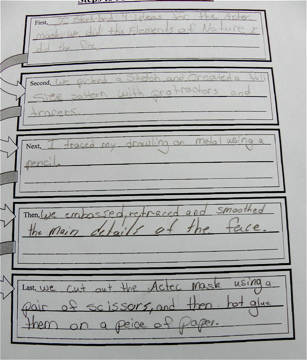 First, I sketched 4 ideas for the Aztec
mask, we did the Elements of Nature &
did the
Second, we picked a sketch and created a full
size pattern with protractors and
tracers.
Next, I traced my drawling on metal using a
pencil.
Then, we embossed, retraced and smoothed
the main details of the face.
Last, we cut out the Actec Mask using a
pair of scissors, and then hot glue
them on a peice of paper.